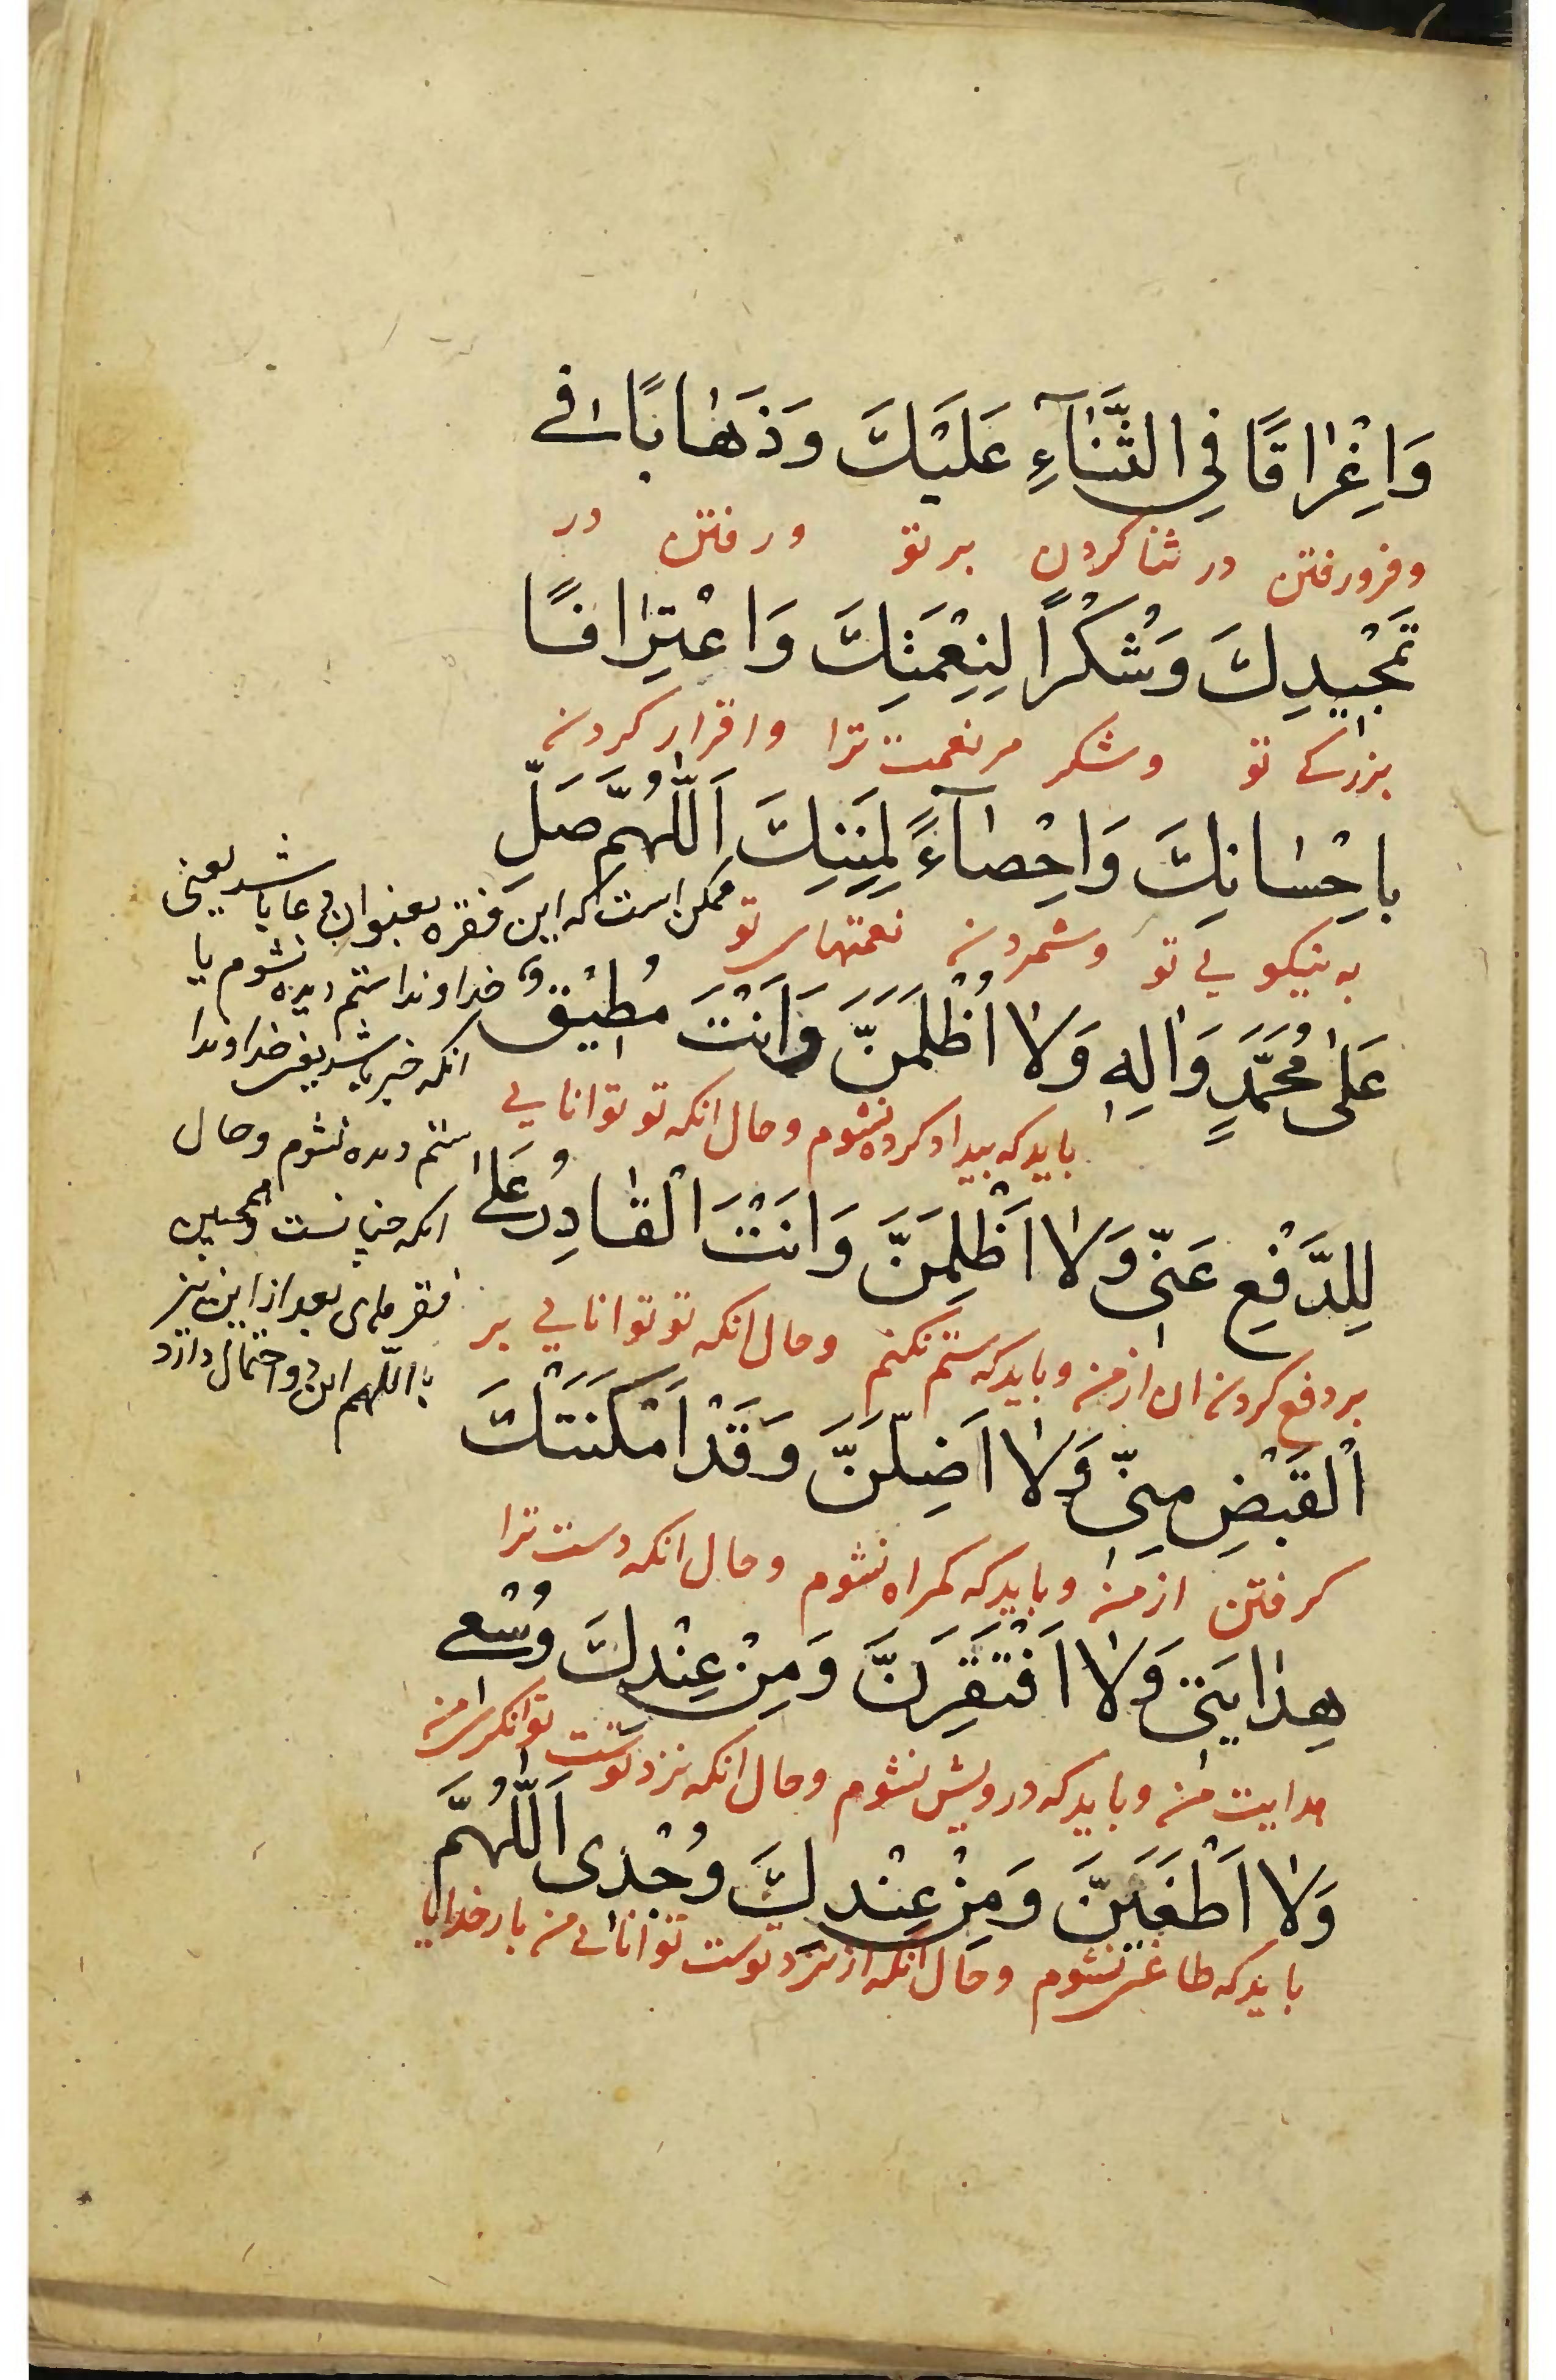 وَاِغْرٰاقًا فِي الثَّنٰآءِ عَلَيْكَ وَذَهٰابًا فے
وفرورفتن در ثنا کردن بر تو ورفتن در
تَمْجِيدِكَ وَشُكْرًا لِنِعْمَتِكَ وَاعْتِرٰافًا
بزرکے تو وشکر مر نعمت ترا واقرار کردن
بِاِحْسٰانِكَ وَاِحْصٰآءً لِمِنَنِكَ اَللّٰهُمَّ صَلِّ
به نیکویے تو وشمردن نعمتهای تو
عَلىٰ مُحَمَّدٍ وَاٰلِهِ وَلاٰ اُظْلَمَنَّ وَاَنْتَ مُطيٖقٌ
باید که بیداد کرده نشوم وحال انکه تو توانایے
لِلدَّفْعِ عَنّىٖ وَلاٰ اَظْلِمَنَّ وَاَنْتَ الْقٰادِرُ عَلىٰ
بر دفع کردن ان از من وباید که ستم نکنم وحال انکه تو توانایے بر
الْقَبْضِ مِنّىٖ وَلاٰ اَضِلَّنَّ وَقَدْ اَمْكَنَتْكَ
کرفتن از من وباید که کمراه نشوم وحال انکه دست ترا
هِدٰايَتىٖ وَلاٰ اَفْتَقِرَنَّ وَمِنْ عِنْدِكَ وُسْعے
هدایت من وباید که درویش نشوم وحال انکه نزد توست توانکری من
وَلاٰ اَطْغَيَنَّ وَمِنْ عِنْدِكَ وُجْدى اَللّٰهُمَّ
باید که طاغی نشوم وحال انکه از نزد توست توانائے من بار خدایا
ممکن است که این فقره بعنوان دعا باشد یعنی
خداوندا ستم دیده نشوم یا
انکه خبر باشد یعنی خداوندا
ستم دیده نشوم وحال
انکه چنانست وهمچنین
فقرهای بعد از این نیز
تا اللهم این دو احتمال دارد